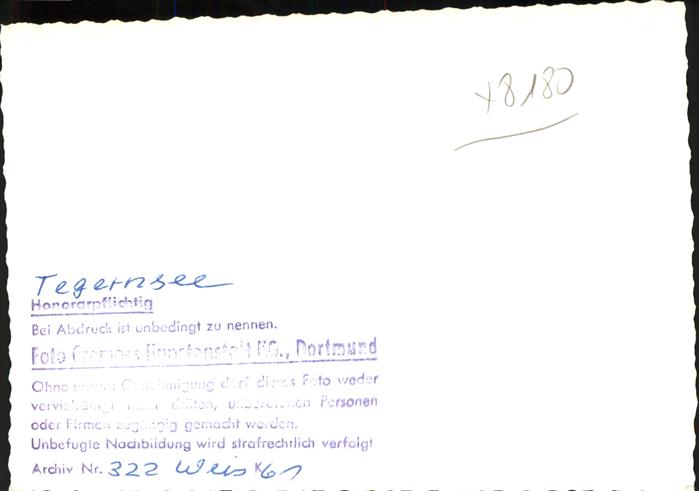 x8180
Tegernsee
Honorarpflichtig
Bei Abdruck ist unbedingt zu nennen.
Foto Kunstanstalt KG., Dortmund
Ohne unsere Genehmigung darf dieses Foto weder
vervielfältigt noch dritten, unberufenen Personen
oder Firmen zugängig gemacht werden.
Unbefugte Nachbildung wird strafrechtlich verfolgt
Archiv Nr. 322 Weis K61